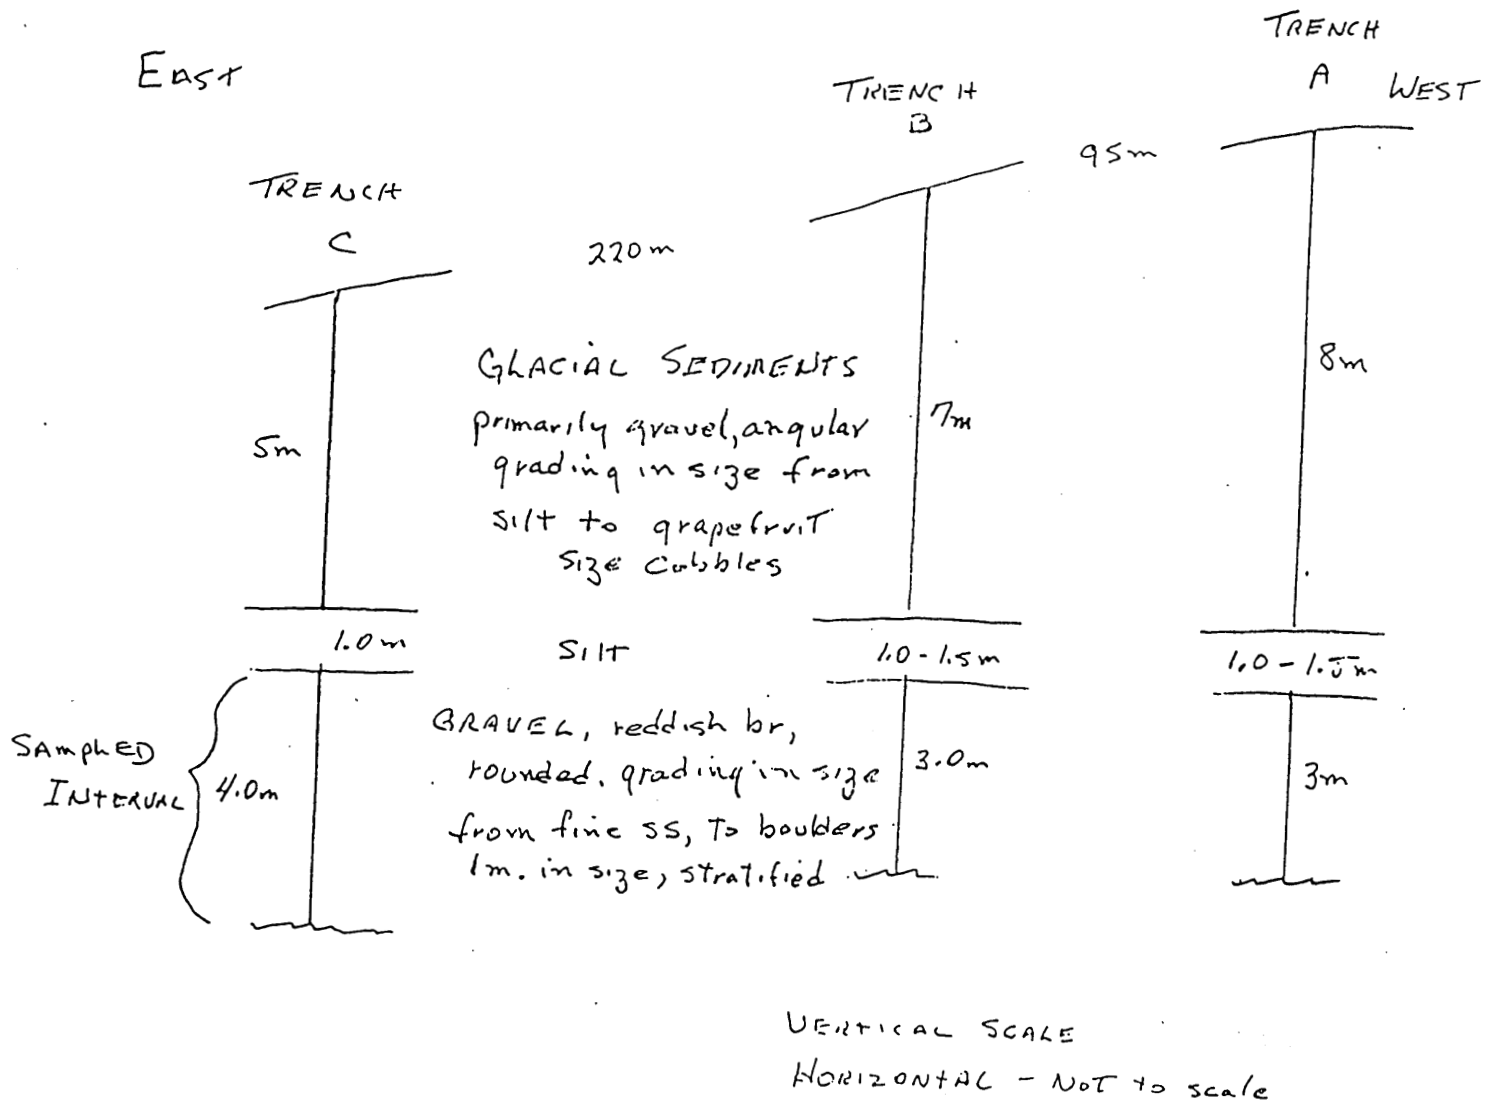 TRENCH
A
WEST
EAST
TRENCH
B
95m
TRENCH
C
220m
GLACIAL SEDIMENTS
primarily gravel, angular
grading in size from
silt to grapefruit
size cobbles
5m
7m
8m
1.0m
SILT
1.0 - 1.5m
1.0 - 1.5m
SAMPLED
INTERVAL
4.0m
GRAVEL, reddish br,
rounded. grading in size
from fine ss, to boulders
1m. in size, stratified
3.0m
3m
VERTICAL SCALE
HORIZONTAL - NOT to scale